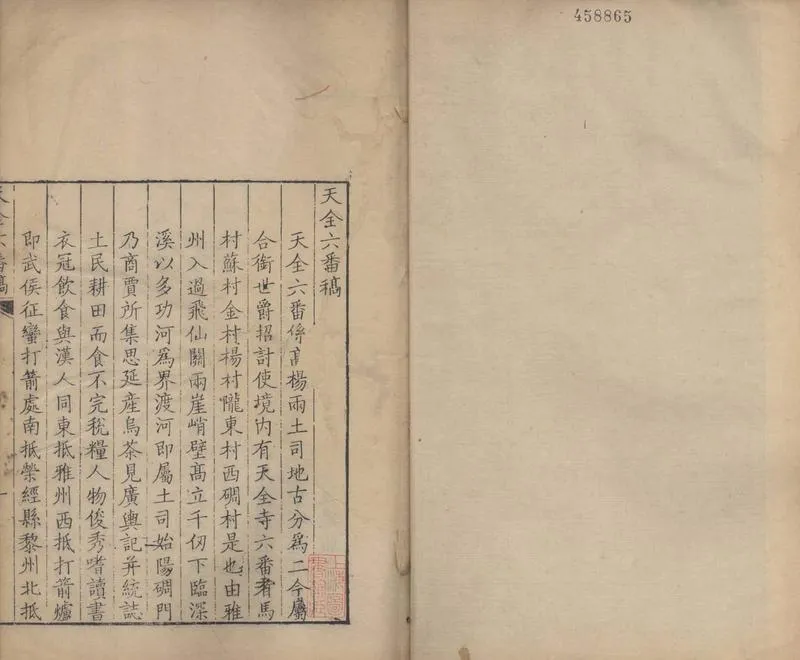 458865
天全六番稿
天全六番係高楊兩土司地古分爲二今屬
合銜世爵招討使境內有天全寺六番者馬
村蘇村金村楊村隴東村西碉村是也由雅
州入過飛仙關兩崖峭壁高立千仞下臨深
溪以多功河爲界渡河即屬土司始陽碉門
乃商賈所集思延產烏茶見廣輿記并統誌
土民耕田而食不完稅糧人物俊秀嗜讀書
衣冠飲食與漢人同東抵雅州西抵打箭爐
即武侯征蠻打箭處南抵滎經縣黎州北抵
天全六番稿
一